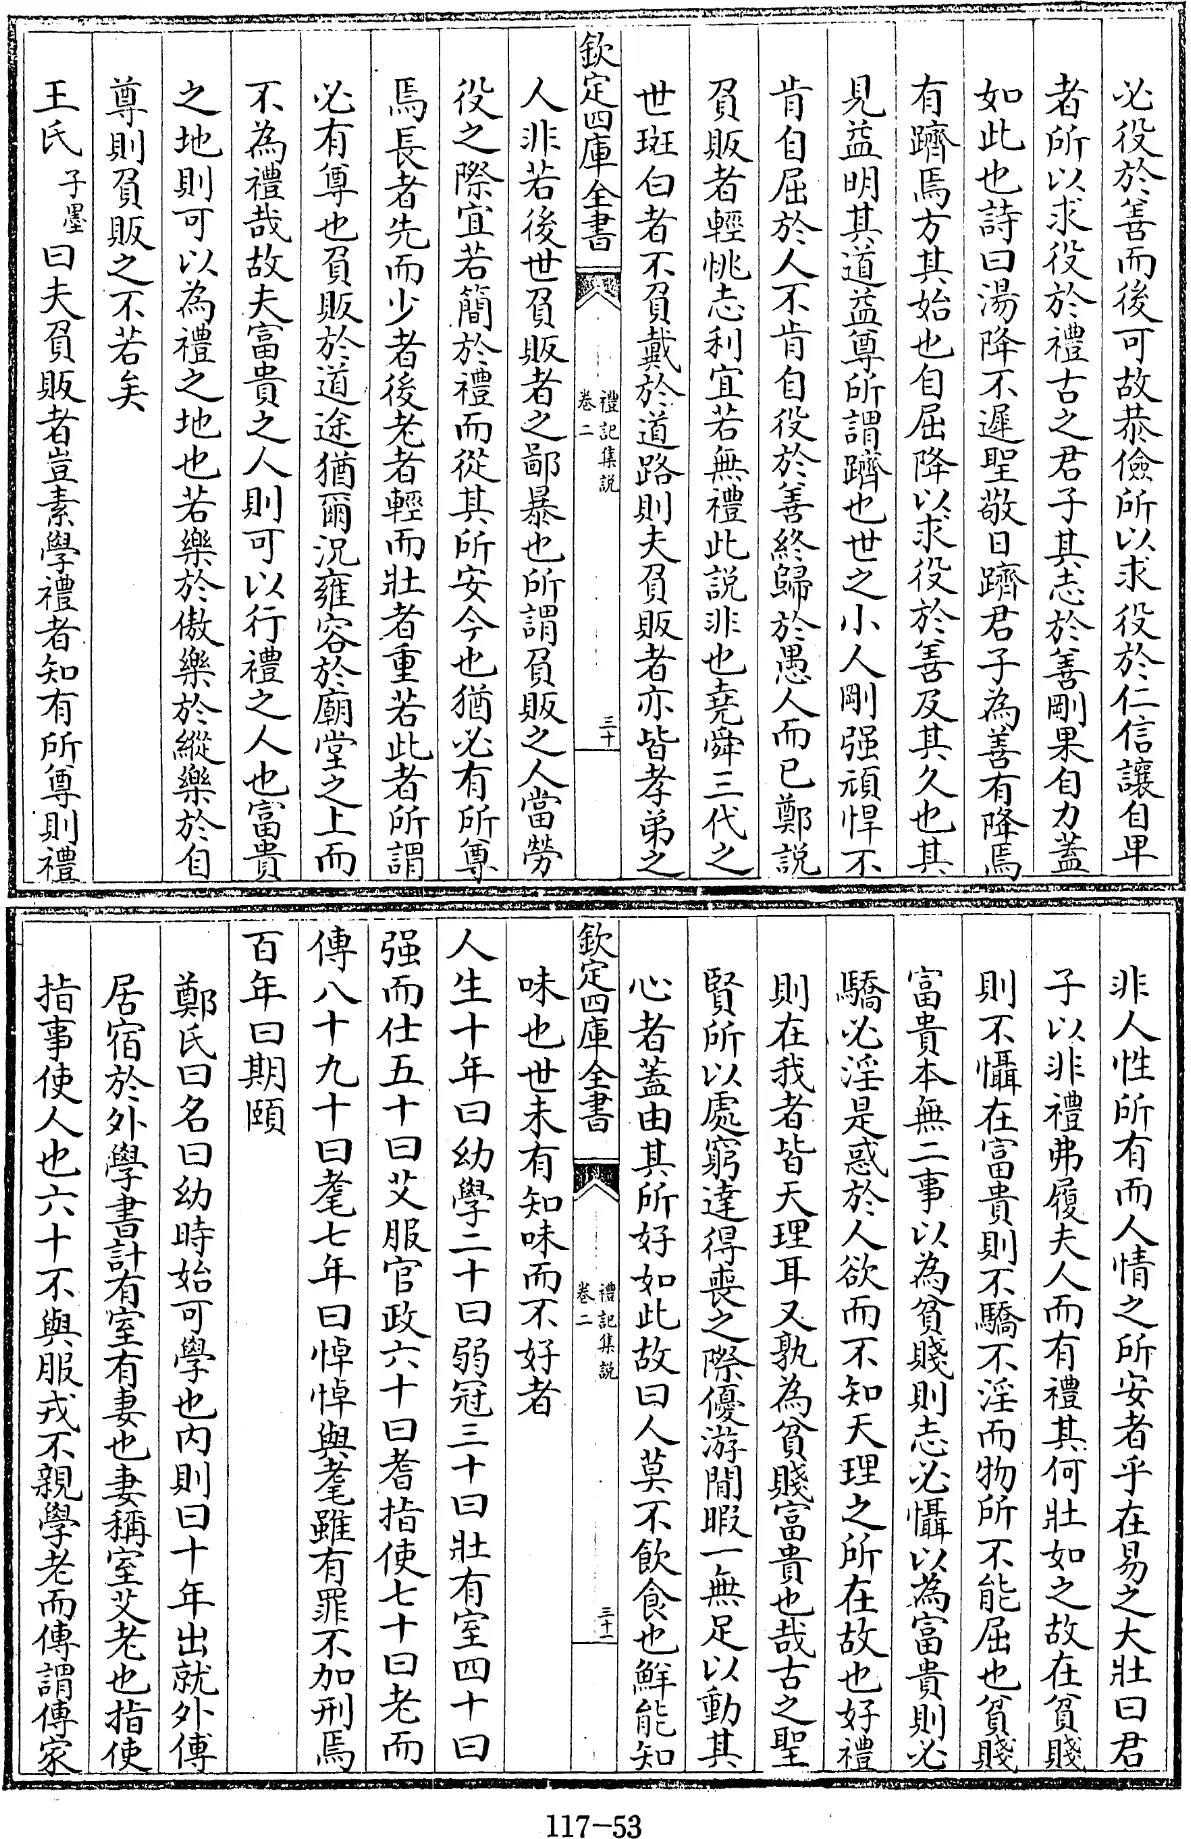 必役於善而後可故恭儉所以求役於仁信讓自卑
者所以求役於禮古之君子其志於善剛果自力蓋
如此也詩曰湯降不遲聖敬日躋君子為善有降焉
有躋焉方其始也自屈降以求役於善及其久也其
見益明其道益尊所謂躋也世之小人剛强頑悍不
肯自屈於人不肯自役於善終歸於愚人而已鄭説
負販者輕恌志利宜若無禮此説非也堯舜三代之
世斑白者不負戴於道路則夫負販者亦皆孝弟之
欽定四庫全書
禮記集説
卷二
三十
人非若後世負販者之鄙暴也所謂負販之人當勞
役之際宜若簡於禮而從其所安今也猶必有所尊
焉長者先而少者後老者輕而壯者重若此者所謂
必有尊也負販於道途猶爾況雍容於廟堂之上而
不為禮哉故夫富貴之人則可以行禮之人也富貴
之地則可以為禮之地也若樂於傲樂於縱樂於自
尊則負販之不若矣
王氏子墨曰夫負販者豈素學禮者知有所尊則禮
非人性所有而人情之所安者乎在易之大壯曰君
子以非禮弗履夫人而有禮其何壯如之故在貧賤
則不懾在富貴則不驕不淫而物所不能屈也貧賤
富貴本無二事以為貧賤則志必懾以為富貴則必
驕必淫是惑於人欲而不知天理之所在故也好禮
則在我者皆天理耳又孰為貧賤富貴也哉古之聖
賢所以處窮達得喪之際優游閒暇一無足以動其
心者蓋由其所好如此故曰人莫不飲食也鮮能知
欽定四庫全書
禮記集説
卷二
三十一
味也世未有知味而不好者
人生十年曰幼學二十曰弱冠三十曰壯有室四十曰
强而仕五十曰艾服官政六十曰耆指使七十曰老而
傳八十九十曰耄七年曰悼悼與耄雖有罪不加刑焉
百年曰期頤
鄭氏曰名曰幼時始可學也内則曰十年出就外傅
居宿於外學書計有室有妻也妻稱室艾老也指使
指事使人也六十不與服戎不親學老而傳謂傳家
117-53